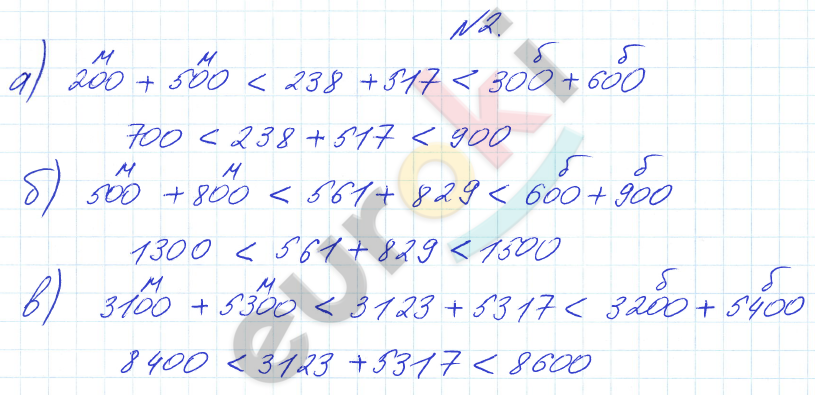 №2.
а) 200 + 500 < 238 + 517 < 300 + 600
м м б б
700 < 238 + 517 < 900
б) 500 + 800 < 561 + 829 < 600 + 900
м м б б
1300 < 561 + 829 < 1500
в) 3100 + 5300 < 3123 + 5317 < 3200 + 5400
м м б б
8400 < 3123 + 5317 < 8600
euroki